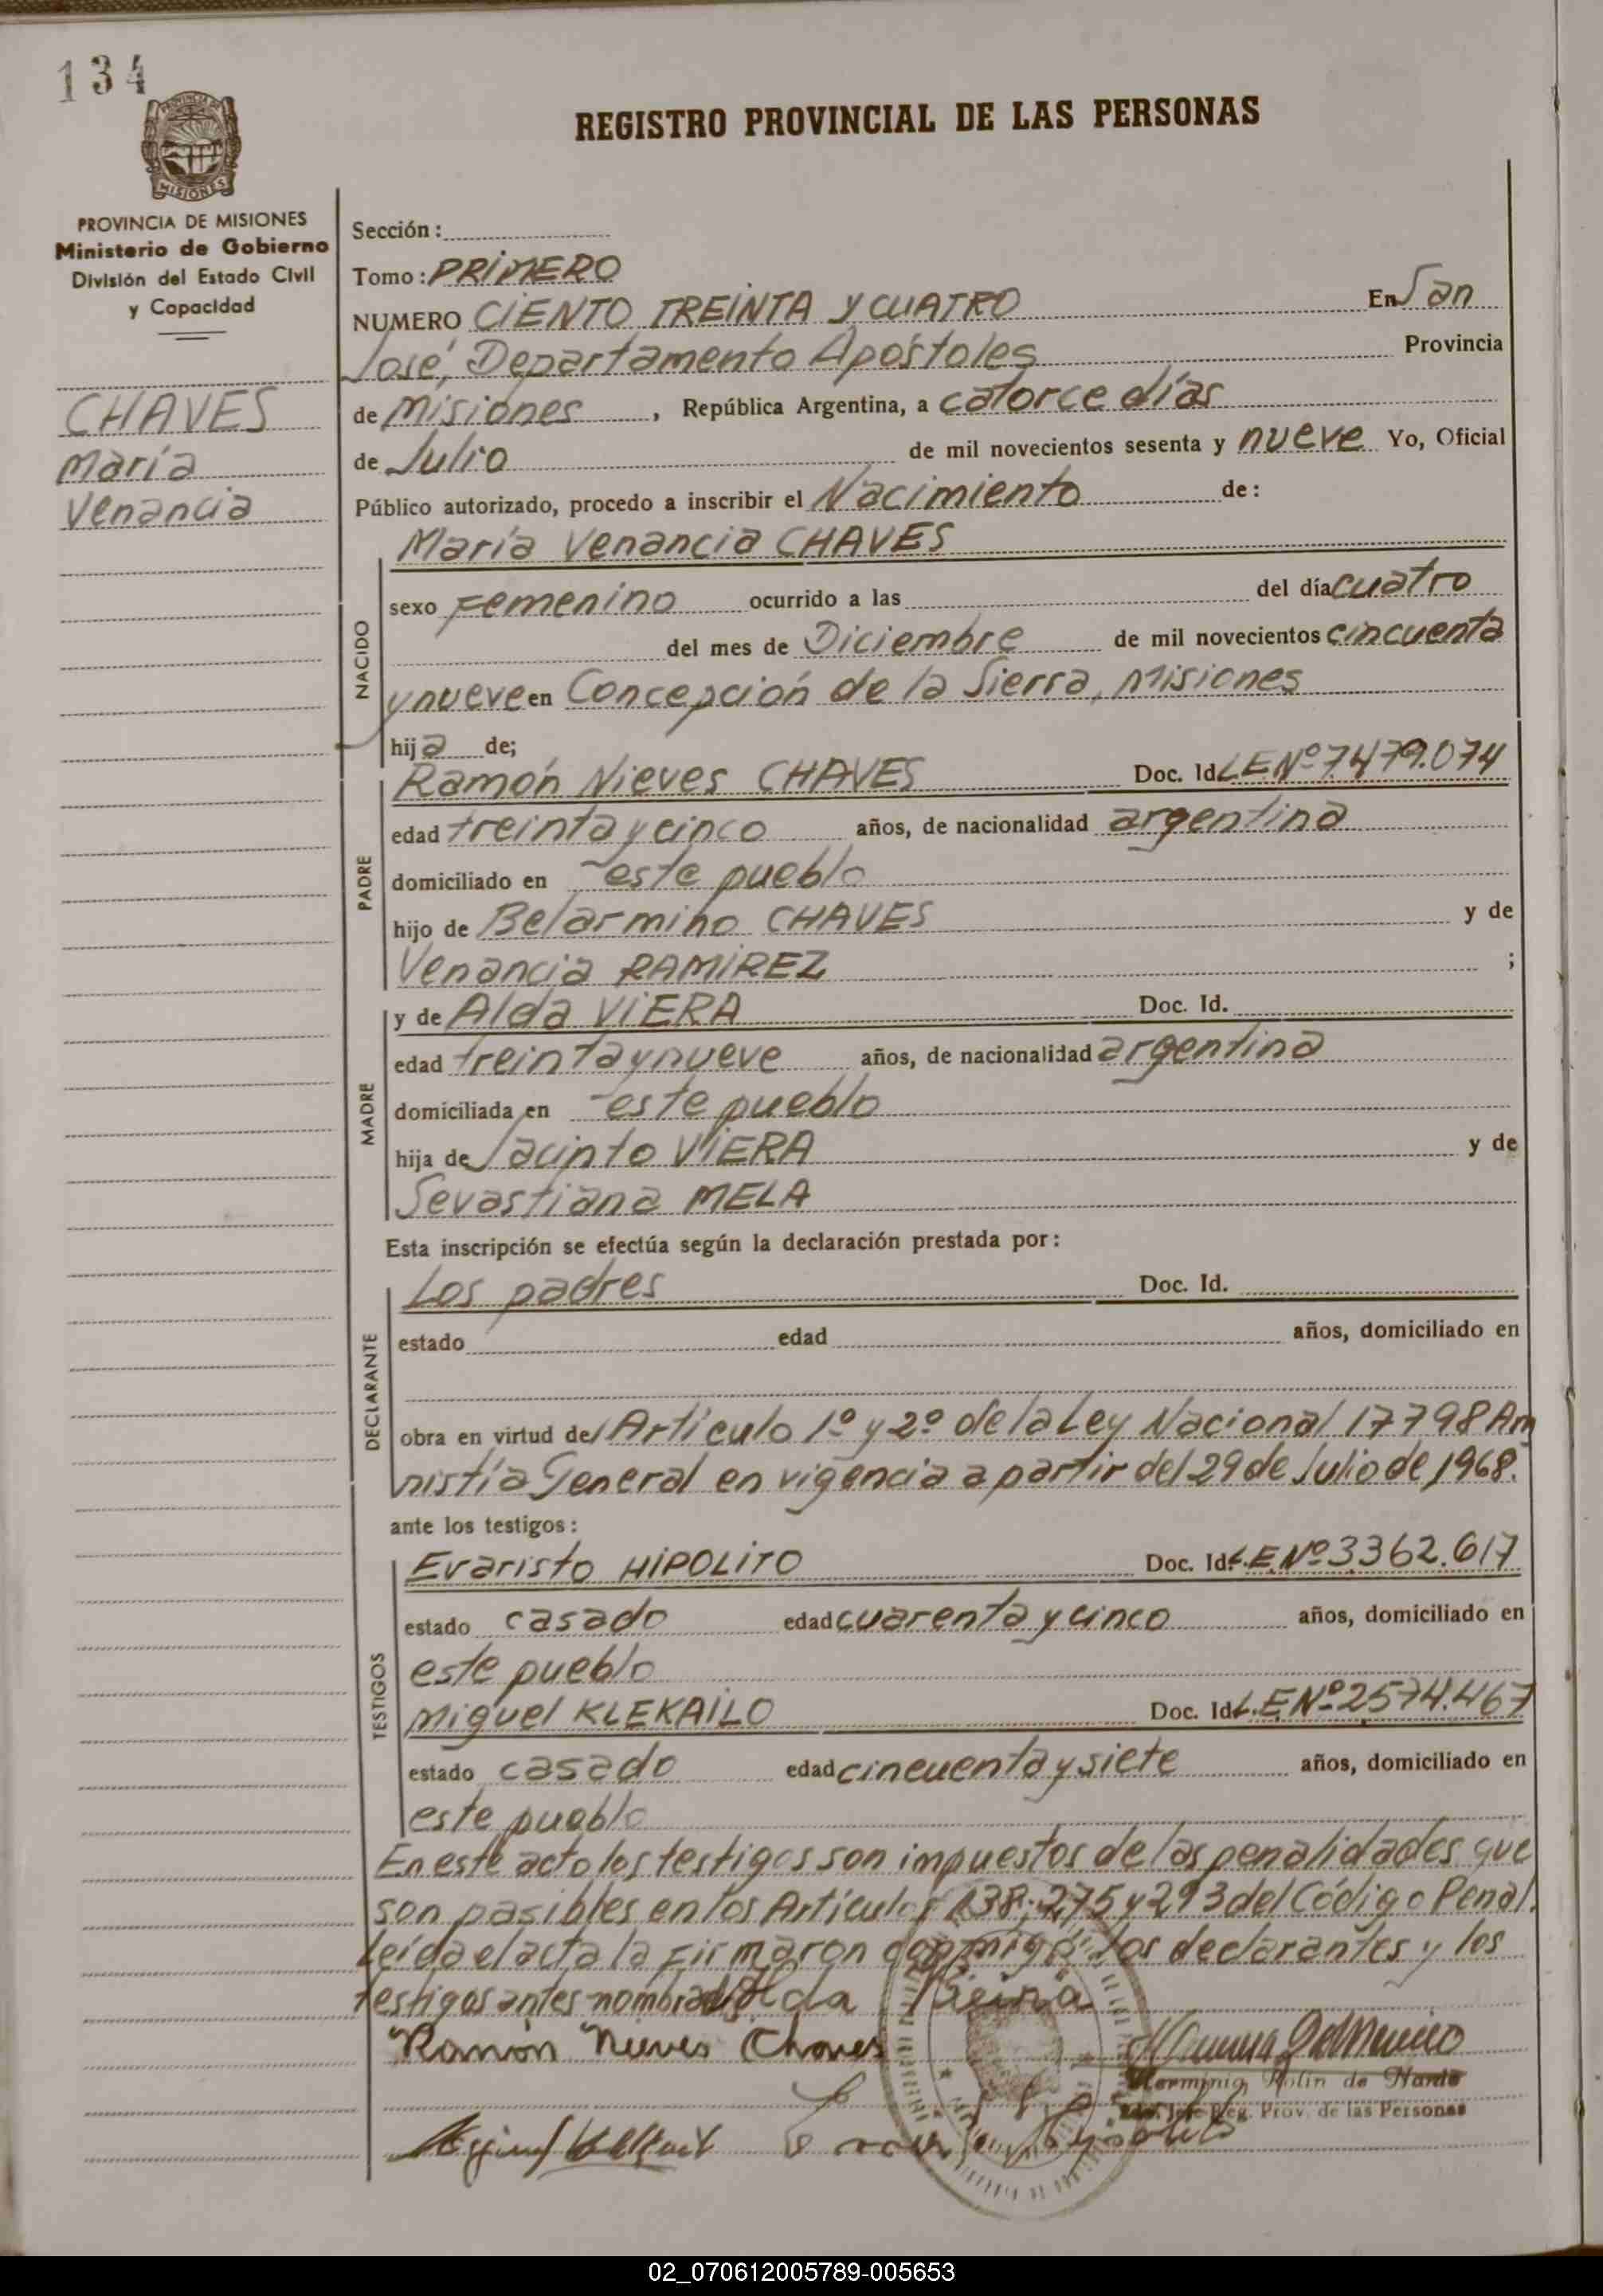 134
REGISTRO PROVINCIAL DE LAS PERSONAS
PROVINCIA DE
MISIONES
PROVINCIA DE MISIONES
Ministerio de Gobierno
División del Estado Civil
y Capacidad
CHAVES
María
Venancia
Sección:
Tomo: PRIMERO
NUMERO CIENTO TREINTA Y CUATRO En San
José, Departamento Apóstoles Provincia
de Misiones, República Argentina, a catorce días
de Julio de mil novecientos sesenta y nueve Yo, Oficial
Público autorizado, procedo a inscribir el Nacimiento de:
María Venancia CHAVES
NACIDO
sexo Femenino ocurrido a las del día cuatro
del mes de Diciembre de mil novecientos cincuenta
y nueve en Concepción de la Sierra, Misiones
hija de;
PADRE
Ramón Nieves CHAVES Doc. Id. L.E Nº 7.479.074
edad treinta y cinco años, de nacionalidad argentina
domiciliado en este pueblo
hijo de Belarmino CHAVES y de
Venancia RAMIREZ ;
MADRE
y de Alda VIERA Doc. Id.
edad treinta y nueve años, de nacionalidad argentina
domiciliada en este pueblo
hija de Jacinto VIERA y de
Sevastiana MELA
Esta inscripción se efectúa según la declaración prestada por:
DECLARANTE
Los padres Doc. Id.
estado edad años, domiciliado en
obra en virtud del Artículo 1º y 2º de la Ley Nacional 17798 Am
nistía General en vigencia a partir del 29 de Julio de 1968.
ante los testigos:
TESTIGOS
Evaristo HIPOLITO Doc. Id. L.E Nº 3362.617
estado casado edad cuarenta y cinco años, domiciliado en
este pueblo
Miguel KLEKAILO Doc. Id. L.E Nº 2574.467
estado casado edad cincuenta y siete años, domiciliado en
este pueblo
En este acto los testigos son impuestos de las penalidades que
son pasibles en los Artículos 138; 275 y 293 del Código Penal.
Leída el acta la firmaron conmigo los declarantes y los
testigos antes nombrados Alda Vieira
Ramón Nieves Chaves
Herminia Rolin de
Jefe Reg. Prov. de las Personas
02_070612005789-005653